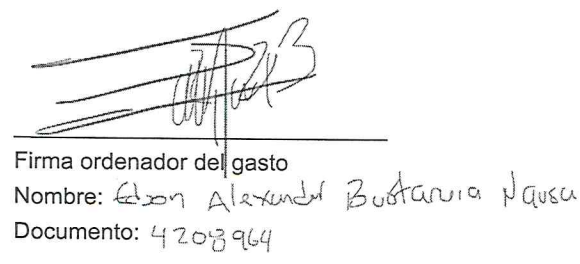 Firma ordenador del gasto
Nombre: Edson Alexander Bustamia Nausa
Documento: 4208964